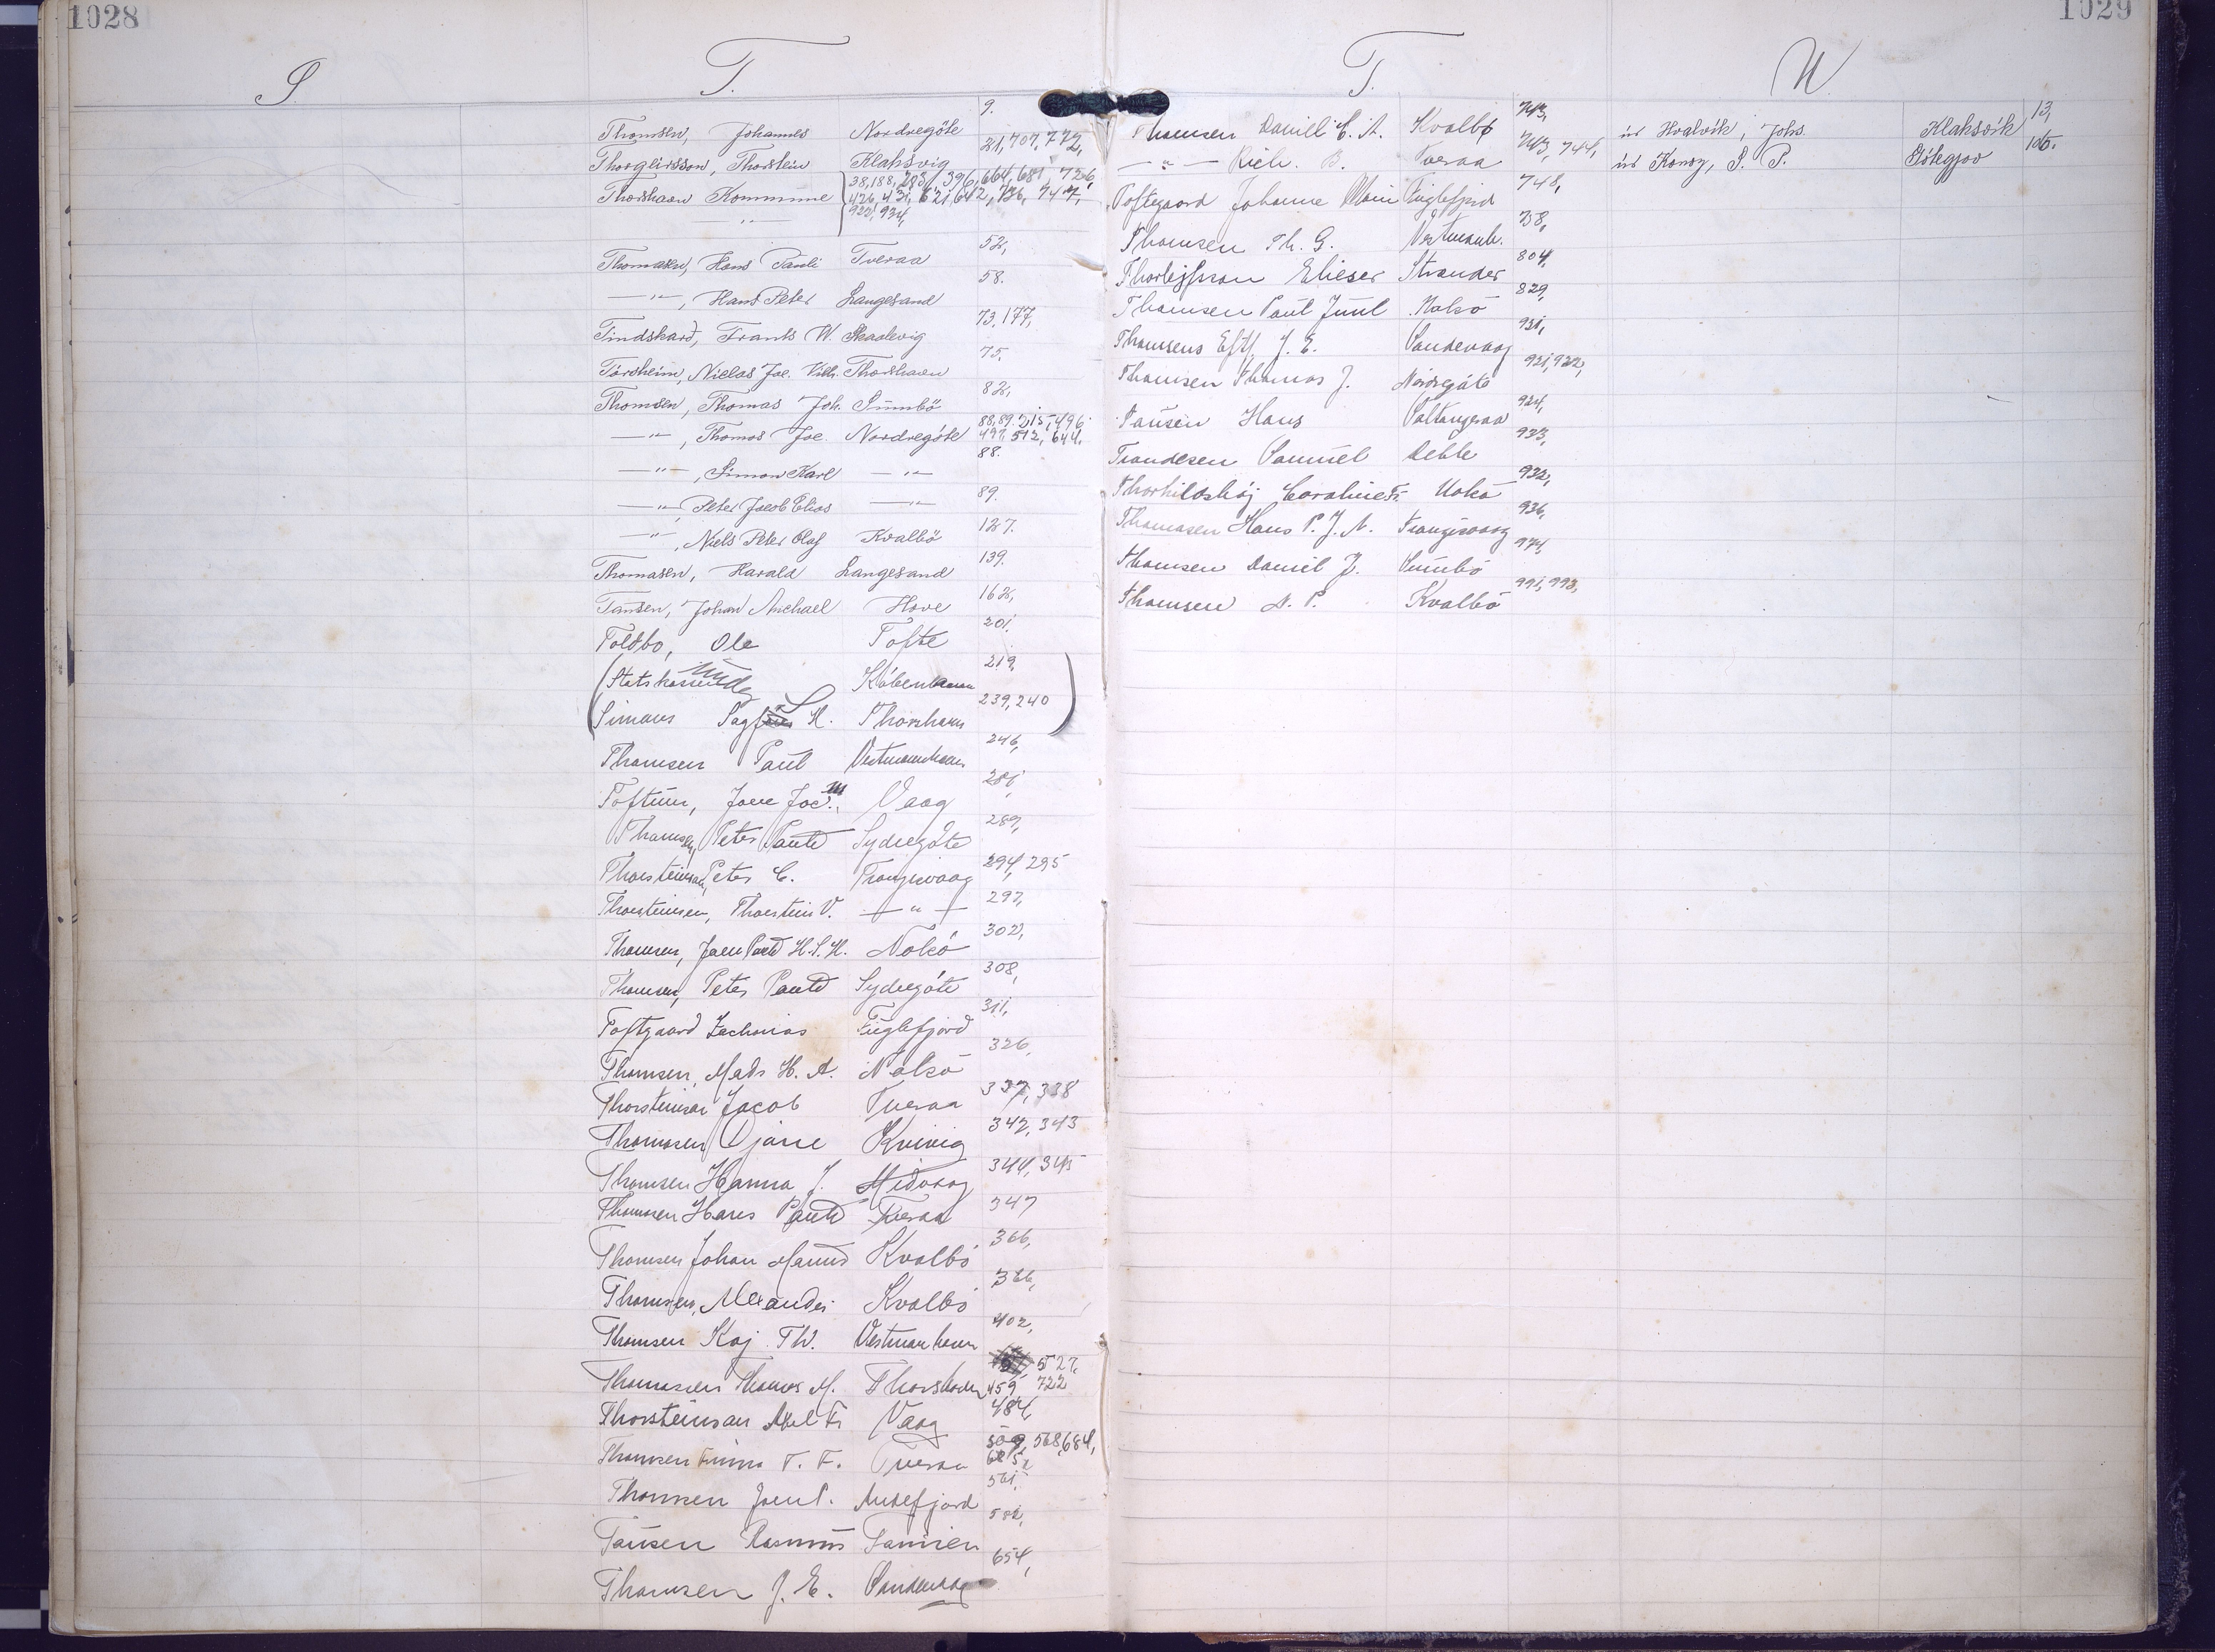 1028
S.
T.
Thomsen, Johannes Nordregöte 9.
Thorgeirsson, Thorstein Klaksvig 21, 707, 772,
Thorshavn Kommune 38, 188, 283, 396, 664, 681, 726,
426, 431, 621, 642, 736, 747,
— " — 922, 934,
Thomasen, Hans Pauli Tveraa 52,
— " —, Hans Peter Langesand 58.
Tindskard, Frants W. Skaalevig 73, 177,
Tórsheim, Niclas Joe. Vilh. Thorshavn 75.
Thomsen, Thomas Joh. Sumbö 82,
— " —, Thomas Joe. Nordregöte 88, 89. 215, 496
497, 512, 644,
— " —, Simon Karl — " — 88.
— " —, Peter Jacob Elias — " — 89.
— " —, Niels Peter Olaf Kvalbö 127.
Thomasen, Harald Langesand 139.
Tausen, Johan Michael Hove 162,
Toldbo, Ole Tofte 201,
(Statskassen Köbenhavn 219,
Simons K. Thorshavn 239, 240)
Thomsen Paul Vestmanhavn 246,
Toftum, Joen Joc. Vaag 281,
Thomsen, Peter Pauld Sydregöte 289,
Thorsteinson, Peter C. Trangisvaag 294, 295
Thorsteinsen, Thorstein V. — " — 297,
Thomsen, Joen Pauld H.S.H. Nolsö 302,
Thomsen, Peter Pauld Sydregöte 308,
Toftgaard Zacharias Fuglefjord 311,
Thomsen, Mads H. A. Nolsö 326,
Thorsteinson Jacob Tveraa 337, 338
Thomasen Djóne Kvivig 342, 343
Thomsen Hanna J. Midvaag 344, 345
Thomsen Hans Pauld Tveraa 347
Thomsen Johan Maund Kvalbö 366,
Thomsen, Alexander Kvalbö 366,
Thomsen Kaj Th. Vestmanhavn 402,
Thomasen Thomas M. Thorshavn 527,
459, 722
Thorsteinson Abel Fr. Vaag 484,
Thomsen T. F. Tveraa 509, 568, 684,
685,
Thomsen Joen P. Andefjord 561,
Tausen Rasmus Famien 582,
Thomsen J. E. Sandevaag 654,
1029
T.
Thomsen Daniel E. A. Kvalbö 743,
— " — Rich. B. Tveraa 743, 744,
Toftegaard Johanne Marie Fuglefjord 748,
Thomsen Th. G. Vestmanh. 758,
Thorleifsson Elieser Strender 804,
Thomsen Paul Juul Nolsö 829,
Thomsens Eftf, J. E. Sandevaag 921,
Thomsen Thomas J. Nordregöte 921, 922,
Tausen Hans Saltangeraa 924,
Trondesen Samuel Leble 933,
Thorkildshöj Caroline Fr. Nolsö 932,
Thomasen Hans P. J. A. Trangisvaag 936,
Thomsen Daniel J. Sumbö 974,
Thomsen N. P. Kvalbö 991, 993,
U
úr Hvalvik, Johs. Klaksvik 13,
úr Konoy, S. P. Stólegjov 106.